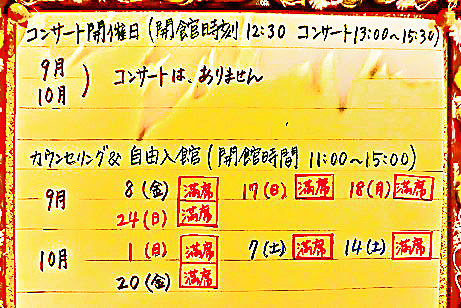 コンサート開催日(開館時刻 12:30 コンサート13:00~15:30)
9月
10月 ) コンサートは、ありません
カウンセリング& 自由入館(開館時間 11:00~15:00)
9月 8(金) 満席 17(日) 満席 18(月) 満席
24(日) 満席
10月 1(日) 満席 7(土) 満席 14(土) 満席
20(金) 満席